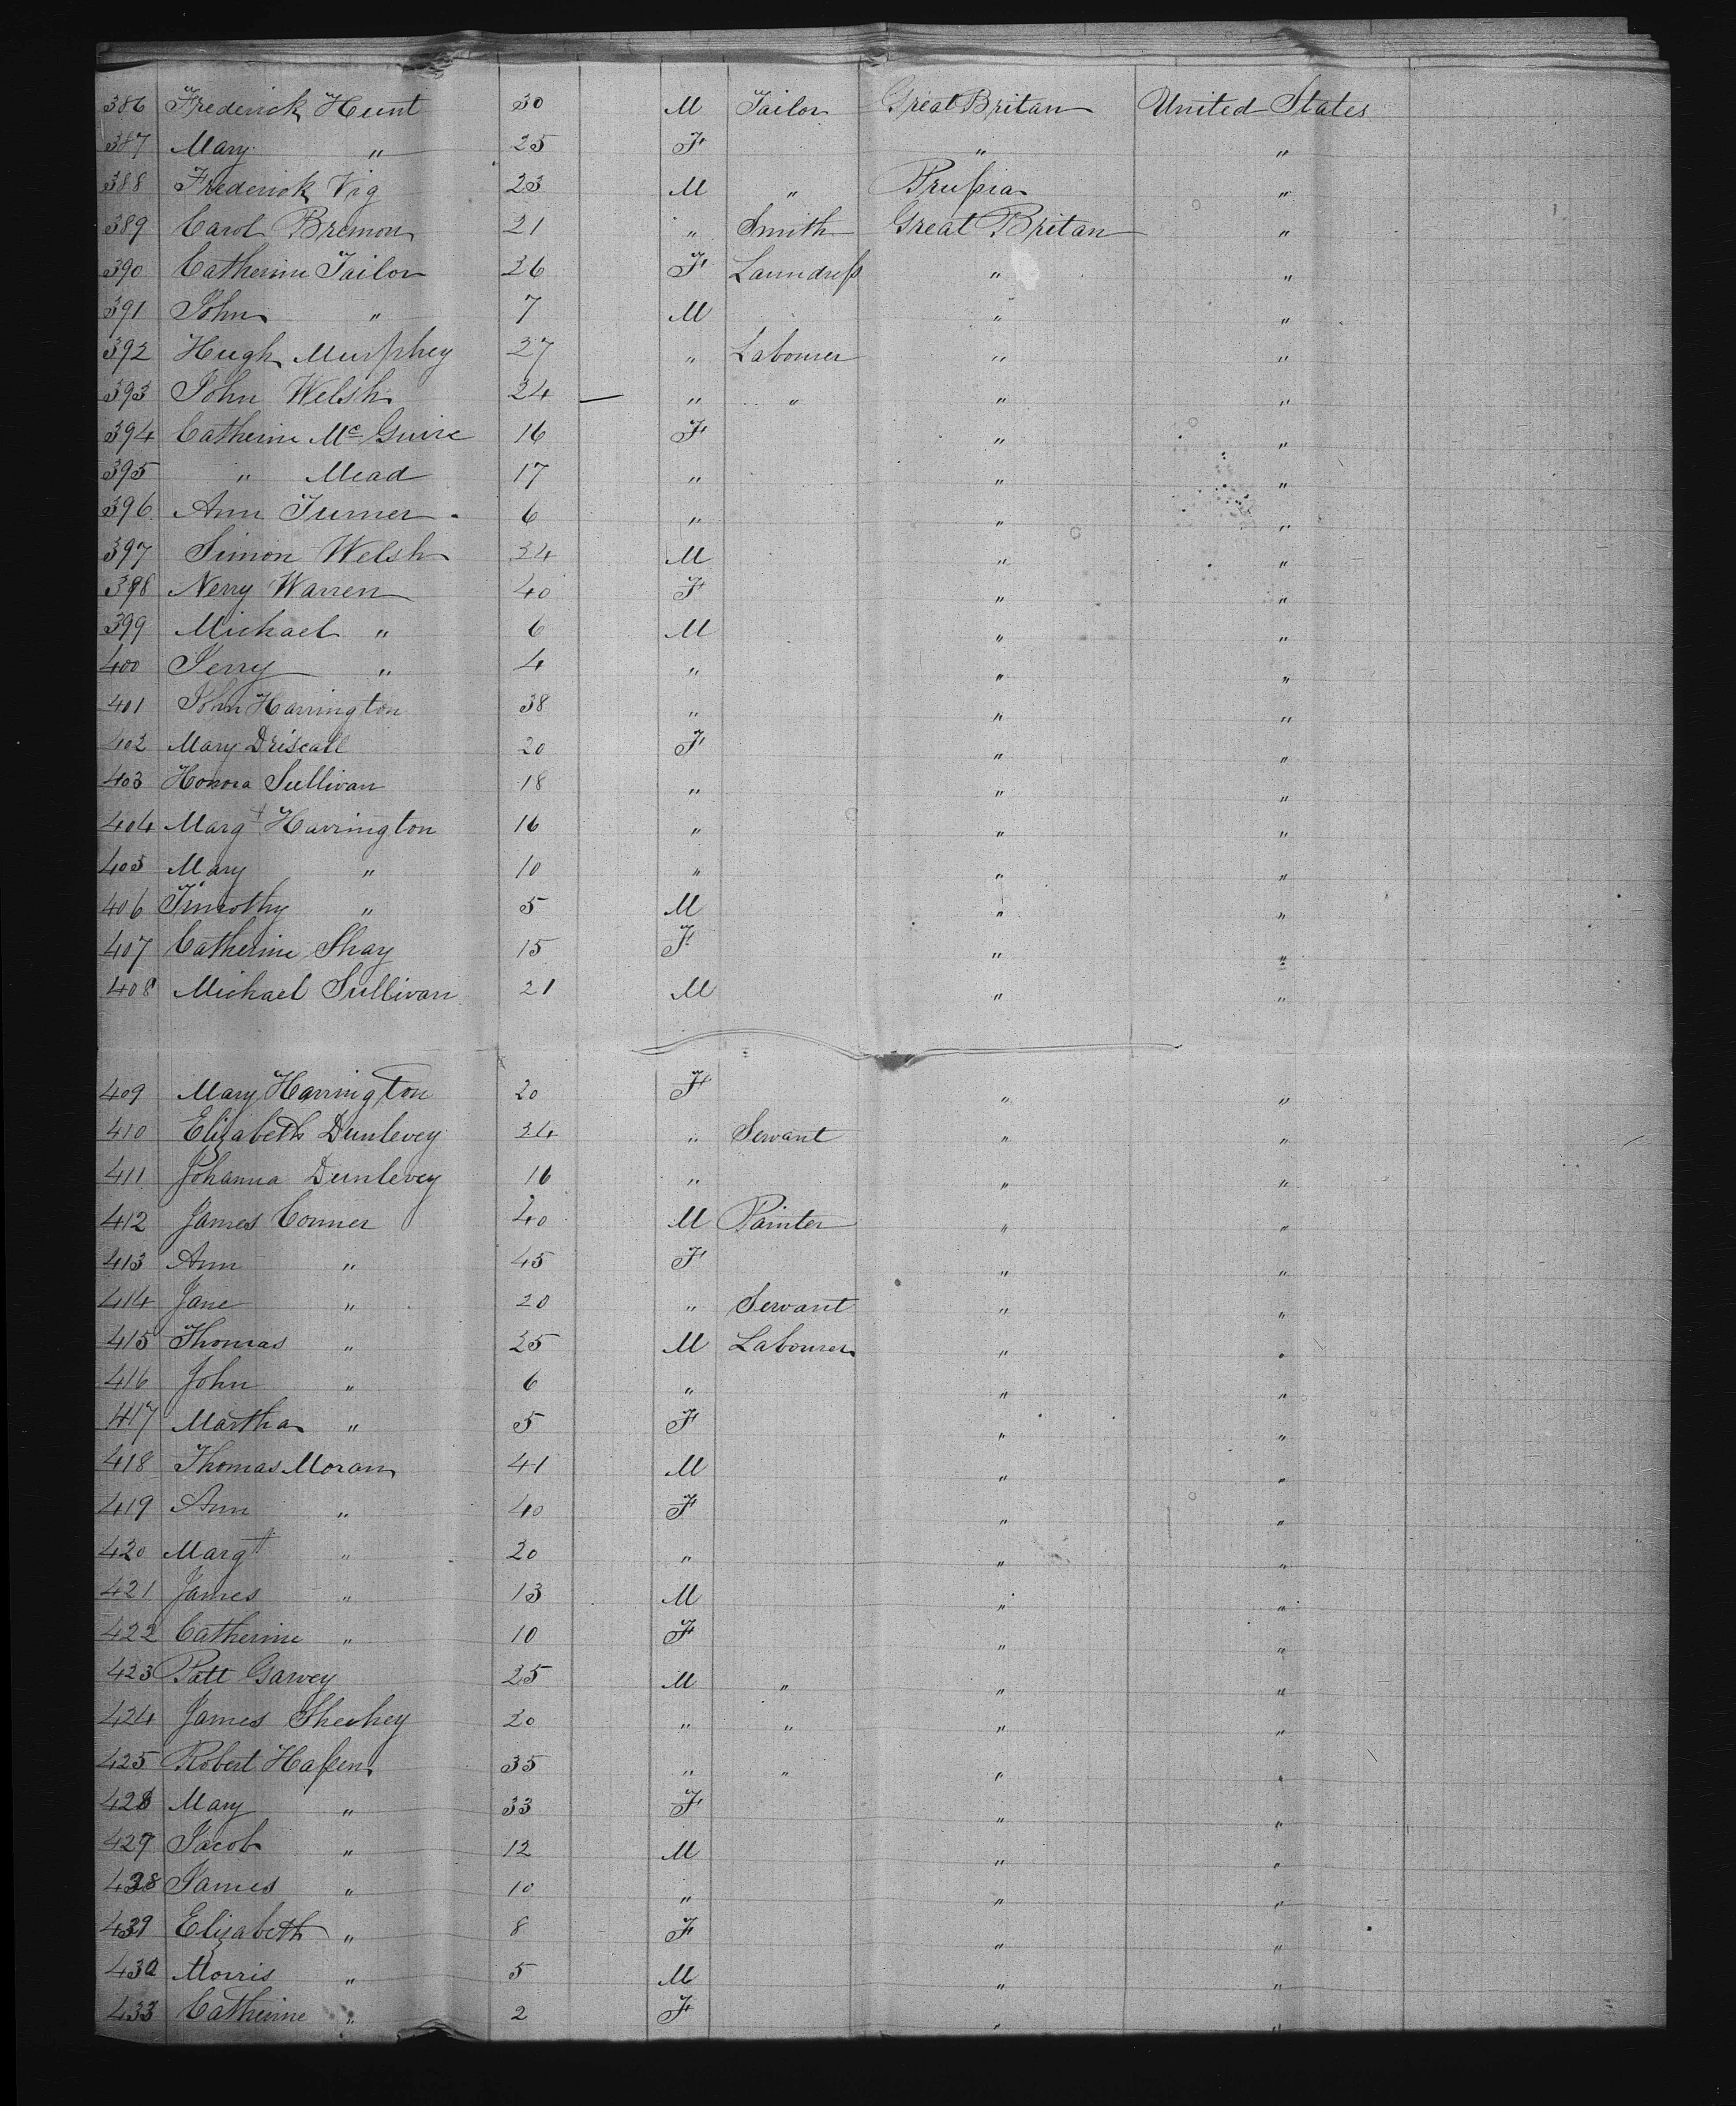 386 Frederick Hunt 30 M Tailor Great Britan United States
387 Mary " 25 F " "
388 Frederick Vig 23 M " Prußia "
389 Carol Bremon 21 " Smith Great Britan "
390 Catherine Tailor 26 F Laundreß " "
391 John " 7 M " "
392 Hugh Murphey 27 " Labourer " "
393 John Welsh 24 — " " " "
394 Catherine Mc Guire 16 F " "
395 " Mead 17 " " "
396 Ann Turner 6 " " "
397 Simon Welsh 34 M " "
398 Nerry Warren 40 F " "
399 Michael " 6 M " "
400 Jerry " 4 " " "
401 John Harrington 38 " " "
402 Mary Driscall 20 F " "
403 Honora Sullivan 18 " " "
404 Margt Harrington 16 " " "
405 Mary " 10 " " "
406 Timothy " 5 M " "
407 Catherine Shay 15 F " "
408 Michael Sullivan 21 M " "
409 Mary Harrington 20 F " "
410 Elizabeth Dunlevey 24 " Servant " "
411 Johanna Dunlevey 16 " " "
412 James Conner 40 M Painter " "
413 Ann " 45 F " "
414 Jane " 20 " Servant " "
415 Thomas " 25 M Labourer " "
416 John " 6 " " "
417 Martha " 5 F " "
418 Thomas Moran 41 M " "
419 Ann " 40 F " "
420 Margt " 20 " " "
421 James " 13 M " "
422 Catherine " 10 F " "
423 Patt Garvey 25 M " " "
424 James Sheehey 20 " " " "
425 Robert Haßen 35 " " " "
426 Mary " 33 F " "
427 Jacob " 12 M " "
428 James " 10 " " "
429 Elizabeth " 8 F " "
430 Morris " 5 M " "
433 Catherine " 2 F " "